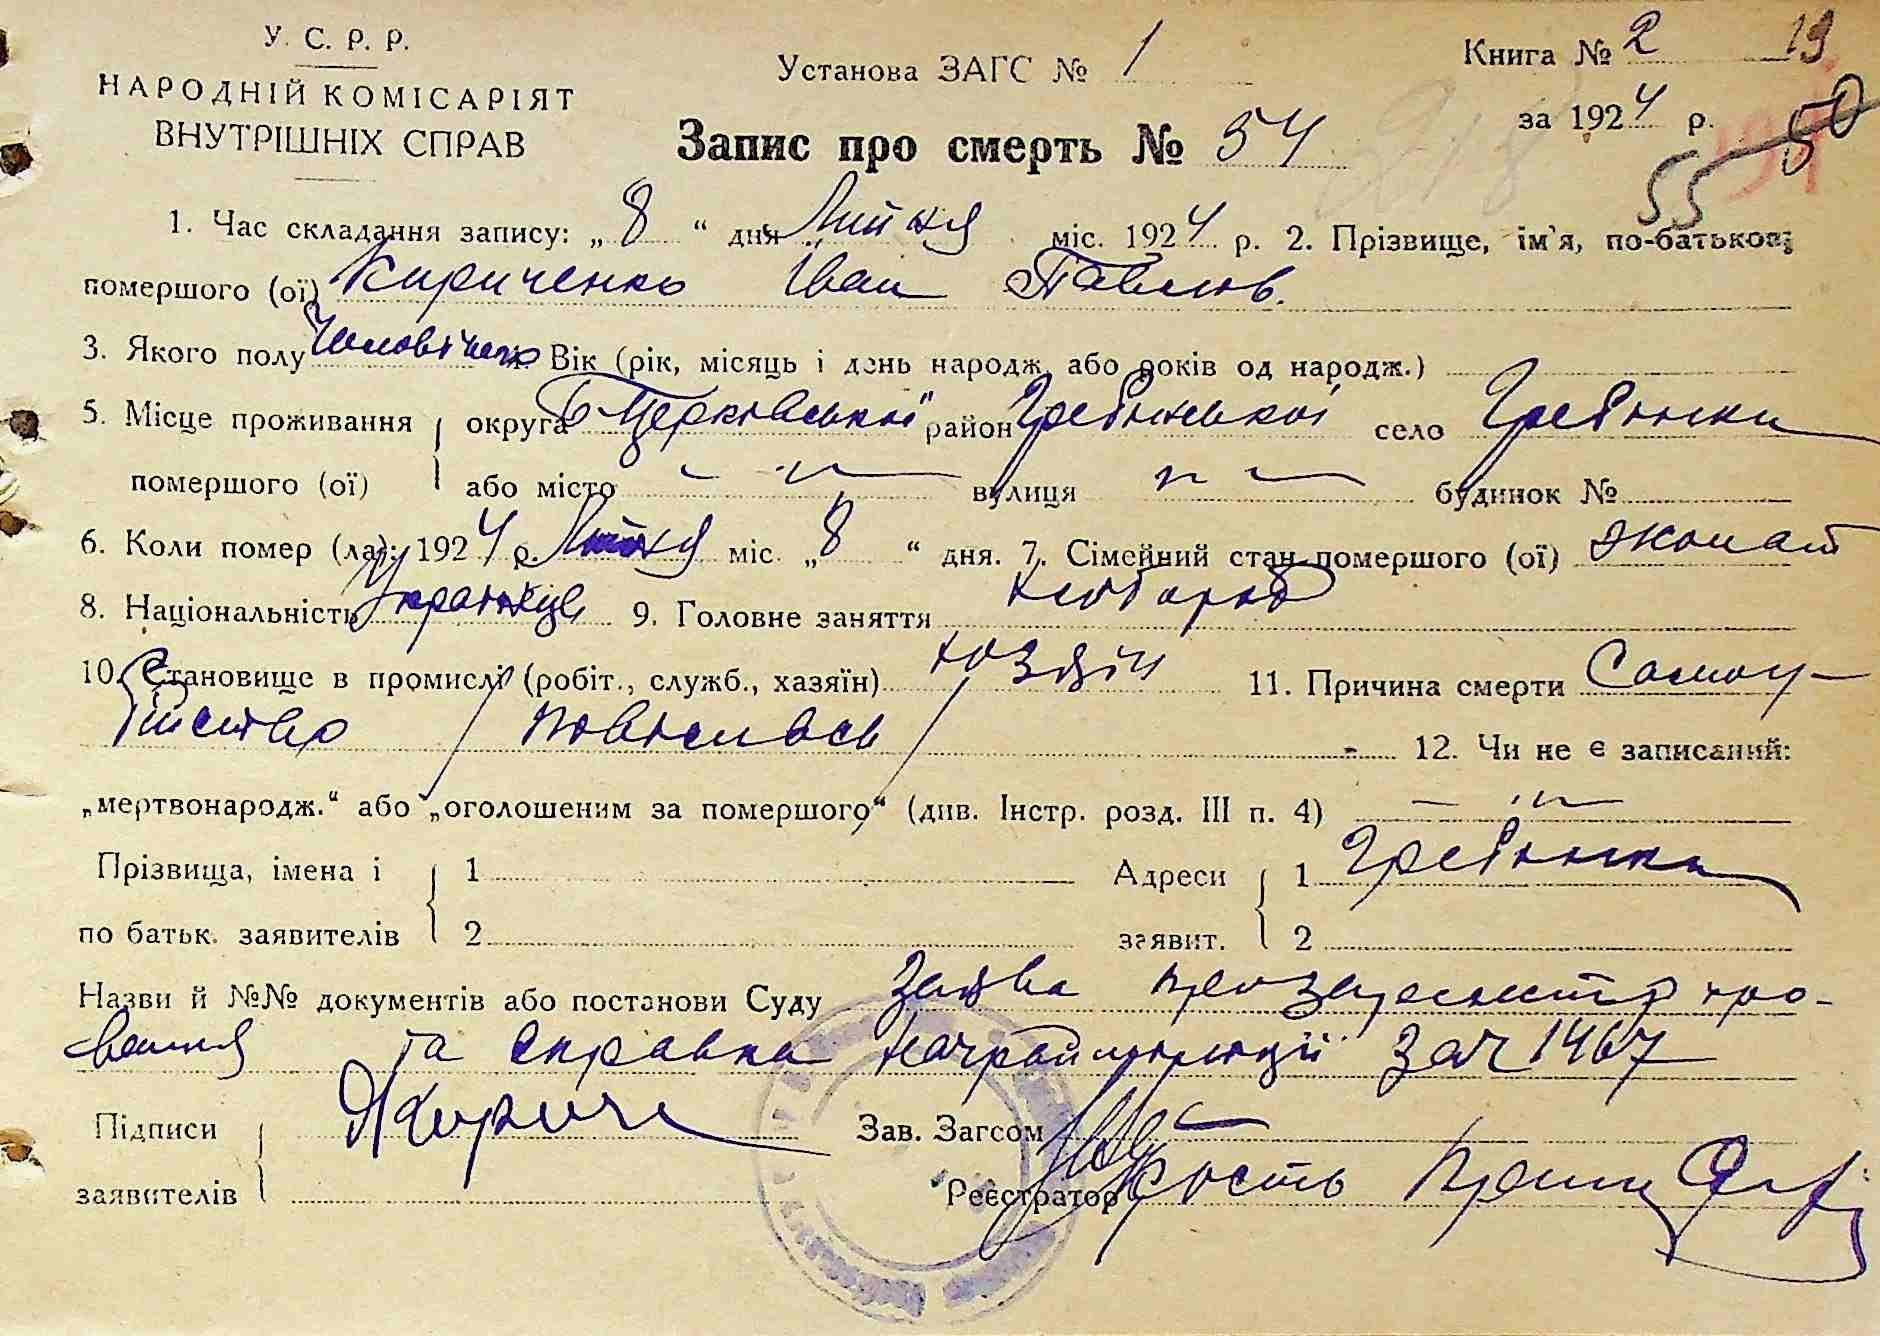 У. С. Р. Р.
НАРОДНІЙ КОМІСАРІЯТ
ВНУТРІШНІХ СПРАВ
Установа ЗАГС № 1
Книга № 2 19
за 1924 р.
55 50
218
Запис про смерть № 54
1. Час складання запису: „ 8 “ дня „ Липня міс. 1924 р. 2. Прізвище, ім'я, по-батькові
помершого (ої) Кириченко Іван Павлов.
3. Якого полу Чоловічого 4. Вік (рік, місяць і день народж. або років од народж.)
5. Місце проживання округа Б Церківської район Гребінської село Гребінки
помершого (ої) або місто — " — вулиця " — будинок №
6. Коли помер (ла): 1924 р. Липня міс. „ 8 “ дня. 7. Сімейний стан помершого (ої) жонат
8. Національність Украінець 9. Головне заняття хлібороб
10. Становище в промислі (робіт., служб., хазяїн) хозяін 11. Причина смерти Самоу-
бійство / повісилвсь / 12. Чи не є записаний:
„мертвонародж.“ або „оголошеним за помершого“ (див. Інстр. розд. III п. 4) — " —
Прізвища, імена і 1 Адреси 1 Гребінки
по батьк. заявителів 2 заявит. 2
Назви й №№ документів або постанови Суду Заява про
вання та справка Начрайміліції за ч 1467
Підписи Кириче Зав. Загсом
заявителів Реєстратор